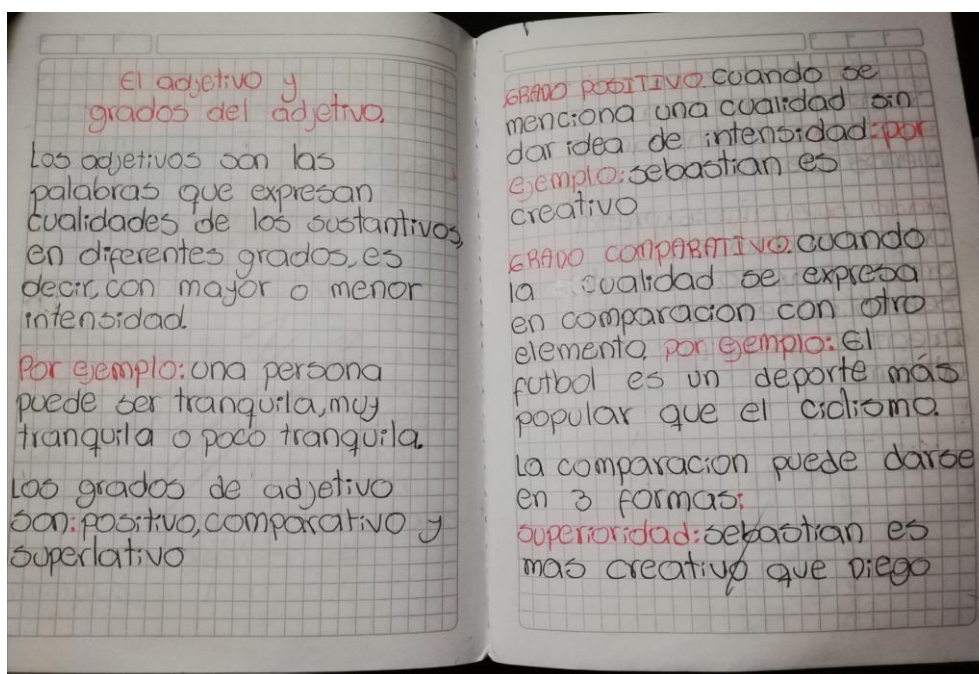 El adjetivo y
grados del adjetivo.
Los adjetivos son las
palabras que expresan
cualidades de los sustantivos,
en diferentes grados, es
decir, con mayor o menor
intensidad.
Por ejemplo: una persona
puede ser tranquila, muy
tranquila o poco tranquila.
Los grados de adjetivo
son: positivo, comparativo y
superlativo
GRADO POSITIVO. cuando se
menciona una cualidad sin
dar idea de intensidad: por
ejemplo: sebastian es
creativo
GRADO COMPARATIVO. cuando
la cualidad se expresa
en comparacion con otro
elemento, por ejemplo: El
futbol es un deporte más
popular que el ciclismo.
La comparacion puede darse
en 3 formas:
superioridad: sebastian es
mas creativo que Diego